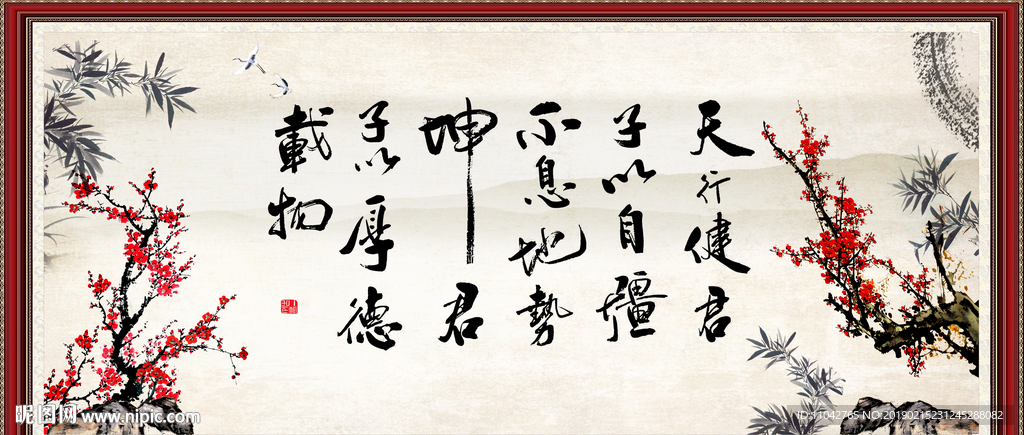 天行健君
子以自疆
不息地勢
坤君
子以厚德
載物
昵图网 www.nipic.com
ID:11042765 NO:20190215231245288082